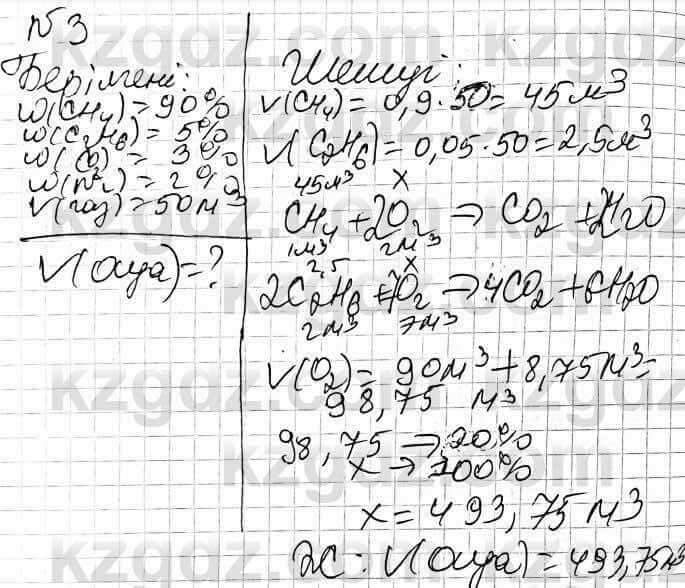 №3
Берілгені:
w(CH4)=90%
w(C2H6)=5%
w(CO)=3%
w(N2)=2%
V(газ)=50м3
V(ауа)=?
Шешуі:
V(CH4)=0,9·50=45м3
V(C2H6)=0,05·50=2,5м3
45м3 x
CH4+2O2⇒CO2+2H2O
1м3 2м3
2,5 x
2C2H6+7O2→4CO2+6H2O
2м3 7м3
V(O2)=90м3+8,75м3=
98,75 м3
98,75⇒20%
x→100%
x=493,75м3
V(ауа)=493,75м3
kzgdz.com